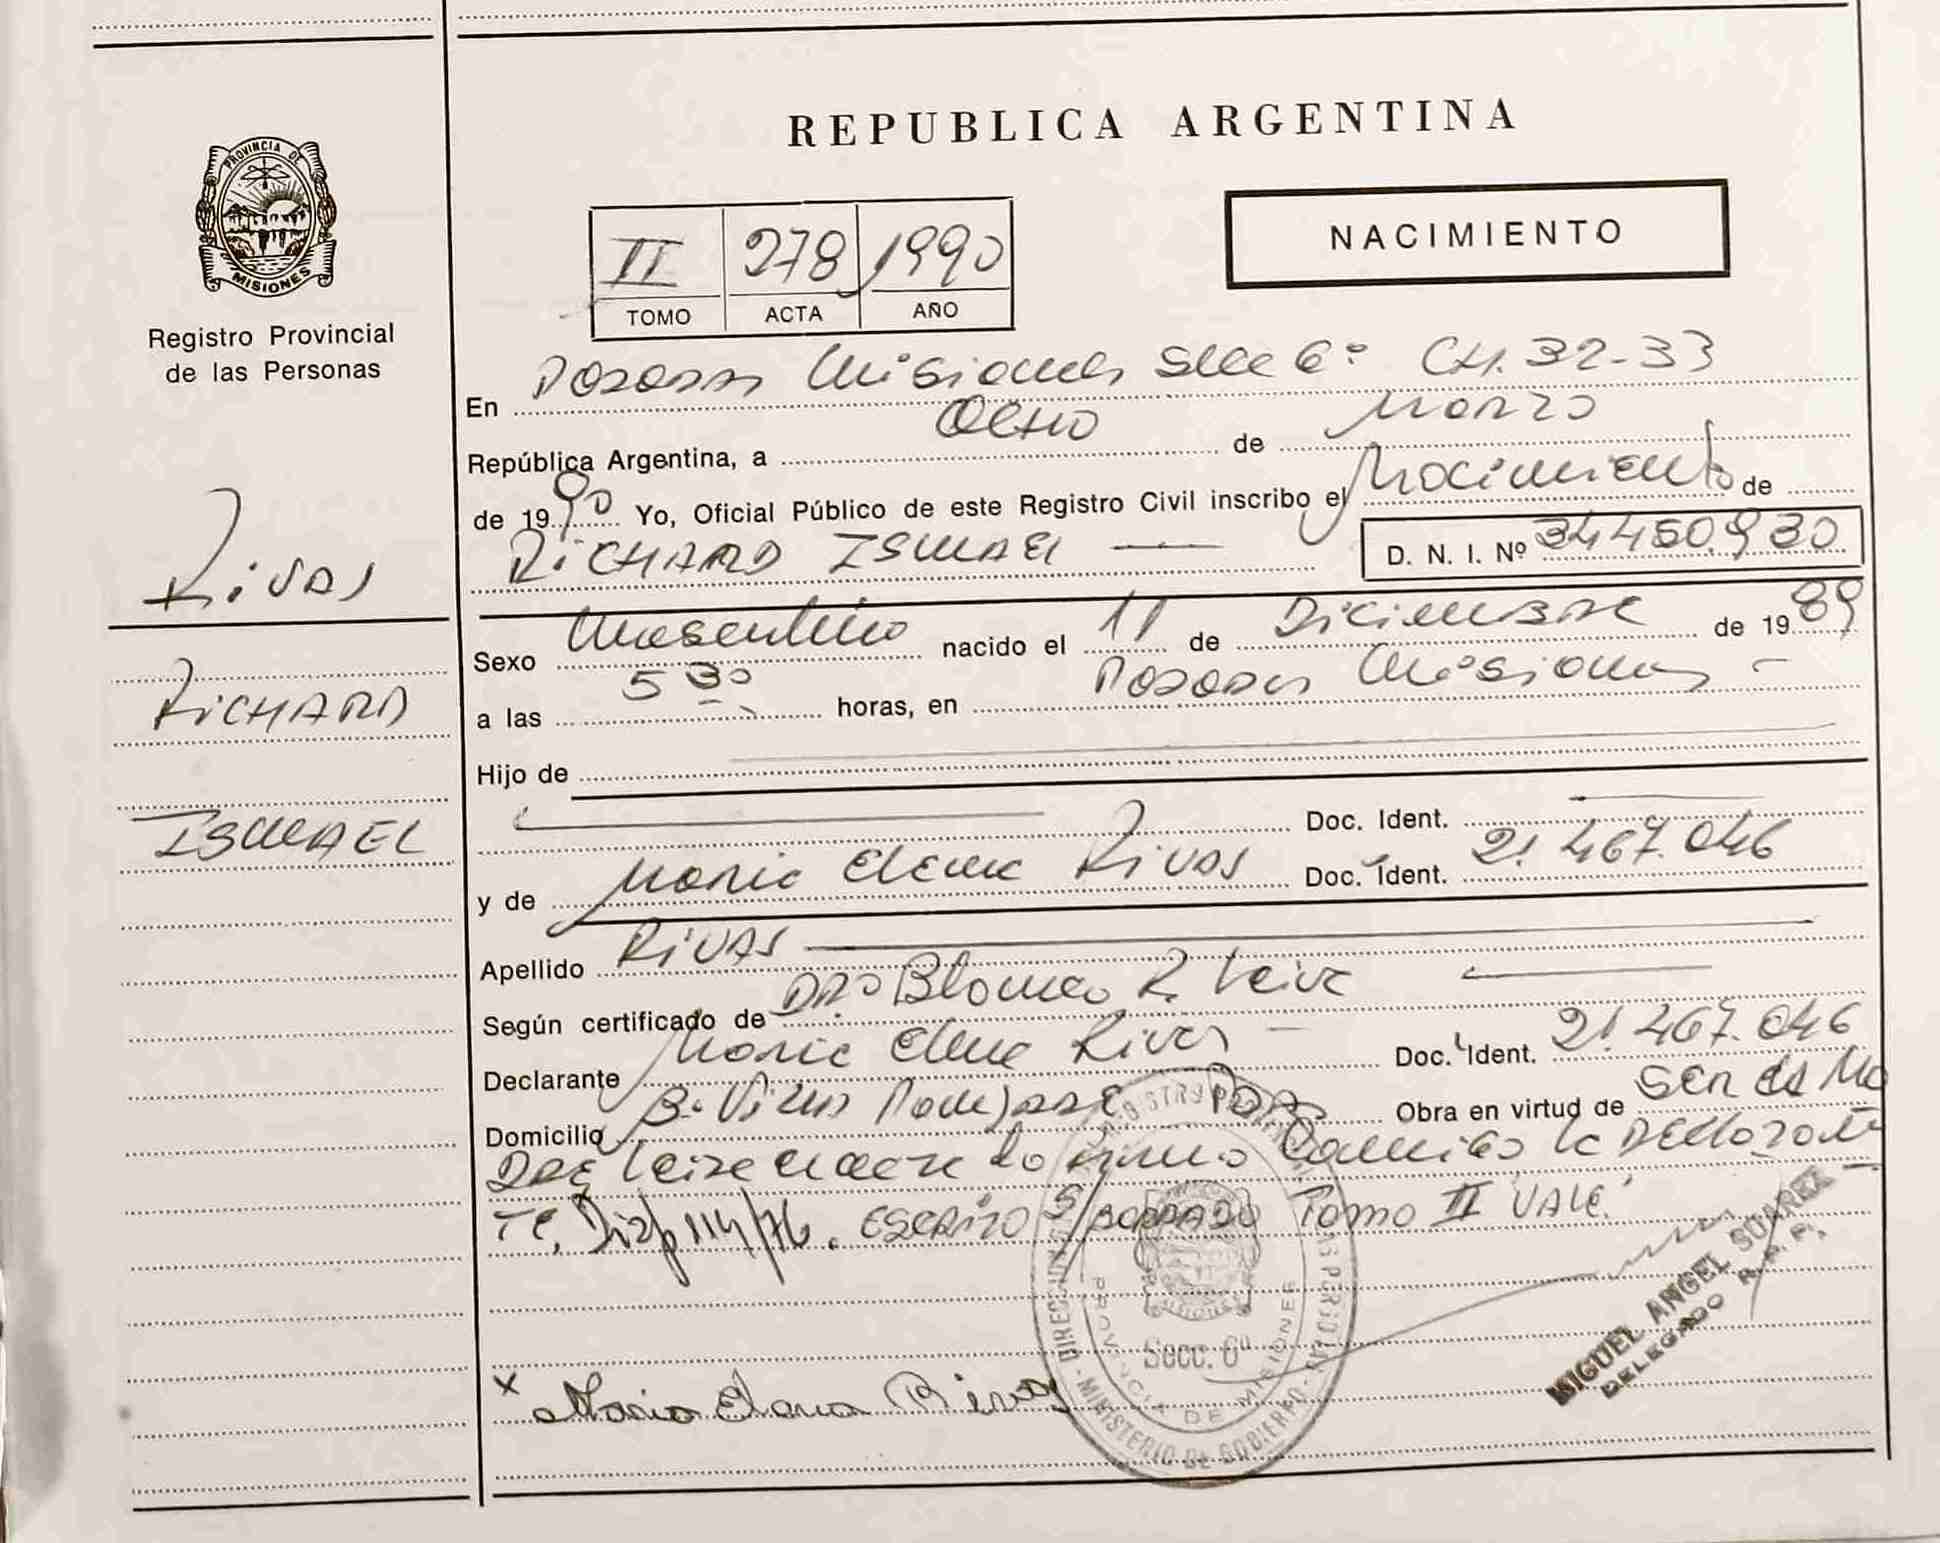 REPUBLICA ARGENTINA
PROVINCIA DE
MISIONES
Registro Provincial
de las Personas
Rivas
RICHARD
ISMAEL
II 278 1990
TOMO ACTA AÑO
NACIMIENTO
En Posadas Misiones Secc 6º CH. 32-33
República Argentina, a Ocho de Marzo
de 1990 Yo, Oficial Público de este Registro Civil inscribo el Nacimiento de
RICHARD ISMAEL D. N. I. Nº 34.450.930
Sexo Masculino nacido el 11 de Diciembre de 1989
a las 5 30 horas, en Posadas Misiones
Hijo de
Doc. Ident.
y de Maria Elena Rivas Doc. Ident. 21.467.046
Apellido RIVAS
Según certificado de DRA Blanca R. Leiva
Declarante Maria Elena Rivas Doc. Ident. 21.467.046
Domicilio Bº Villa Obra en virtud de ser la Ma
dre Leida el acta la firma Conmigo la Declaran
te, Disp 114/76. ESCRITO S/BORRADO Tomo II VALE.
DIRECCION REGISTRO PROVINCIAL DE LAS PERSONAS
MINISTERIO DE GOBIERNO
PROVINCIA DE MISIONES
Secc. 6ª
MIGUEL ANGEL SUAREZ
DELEGADO R. P. P.
x Maria Elena Rivas